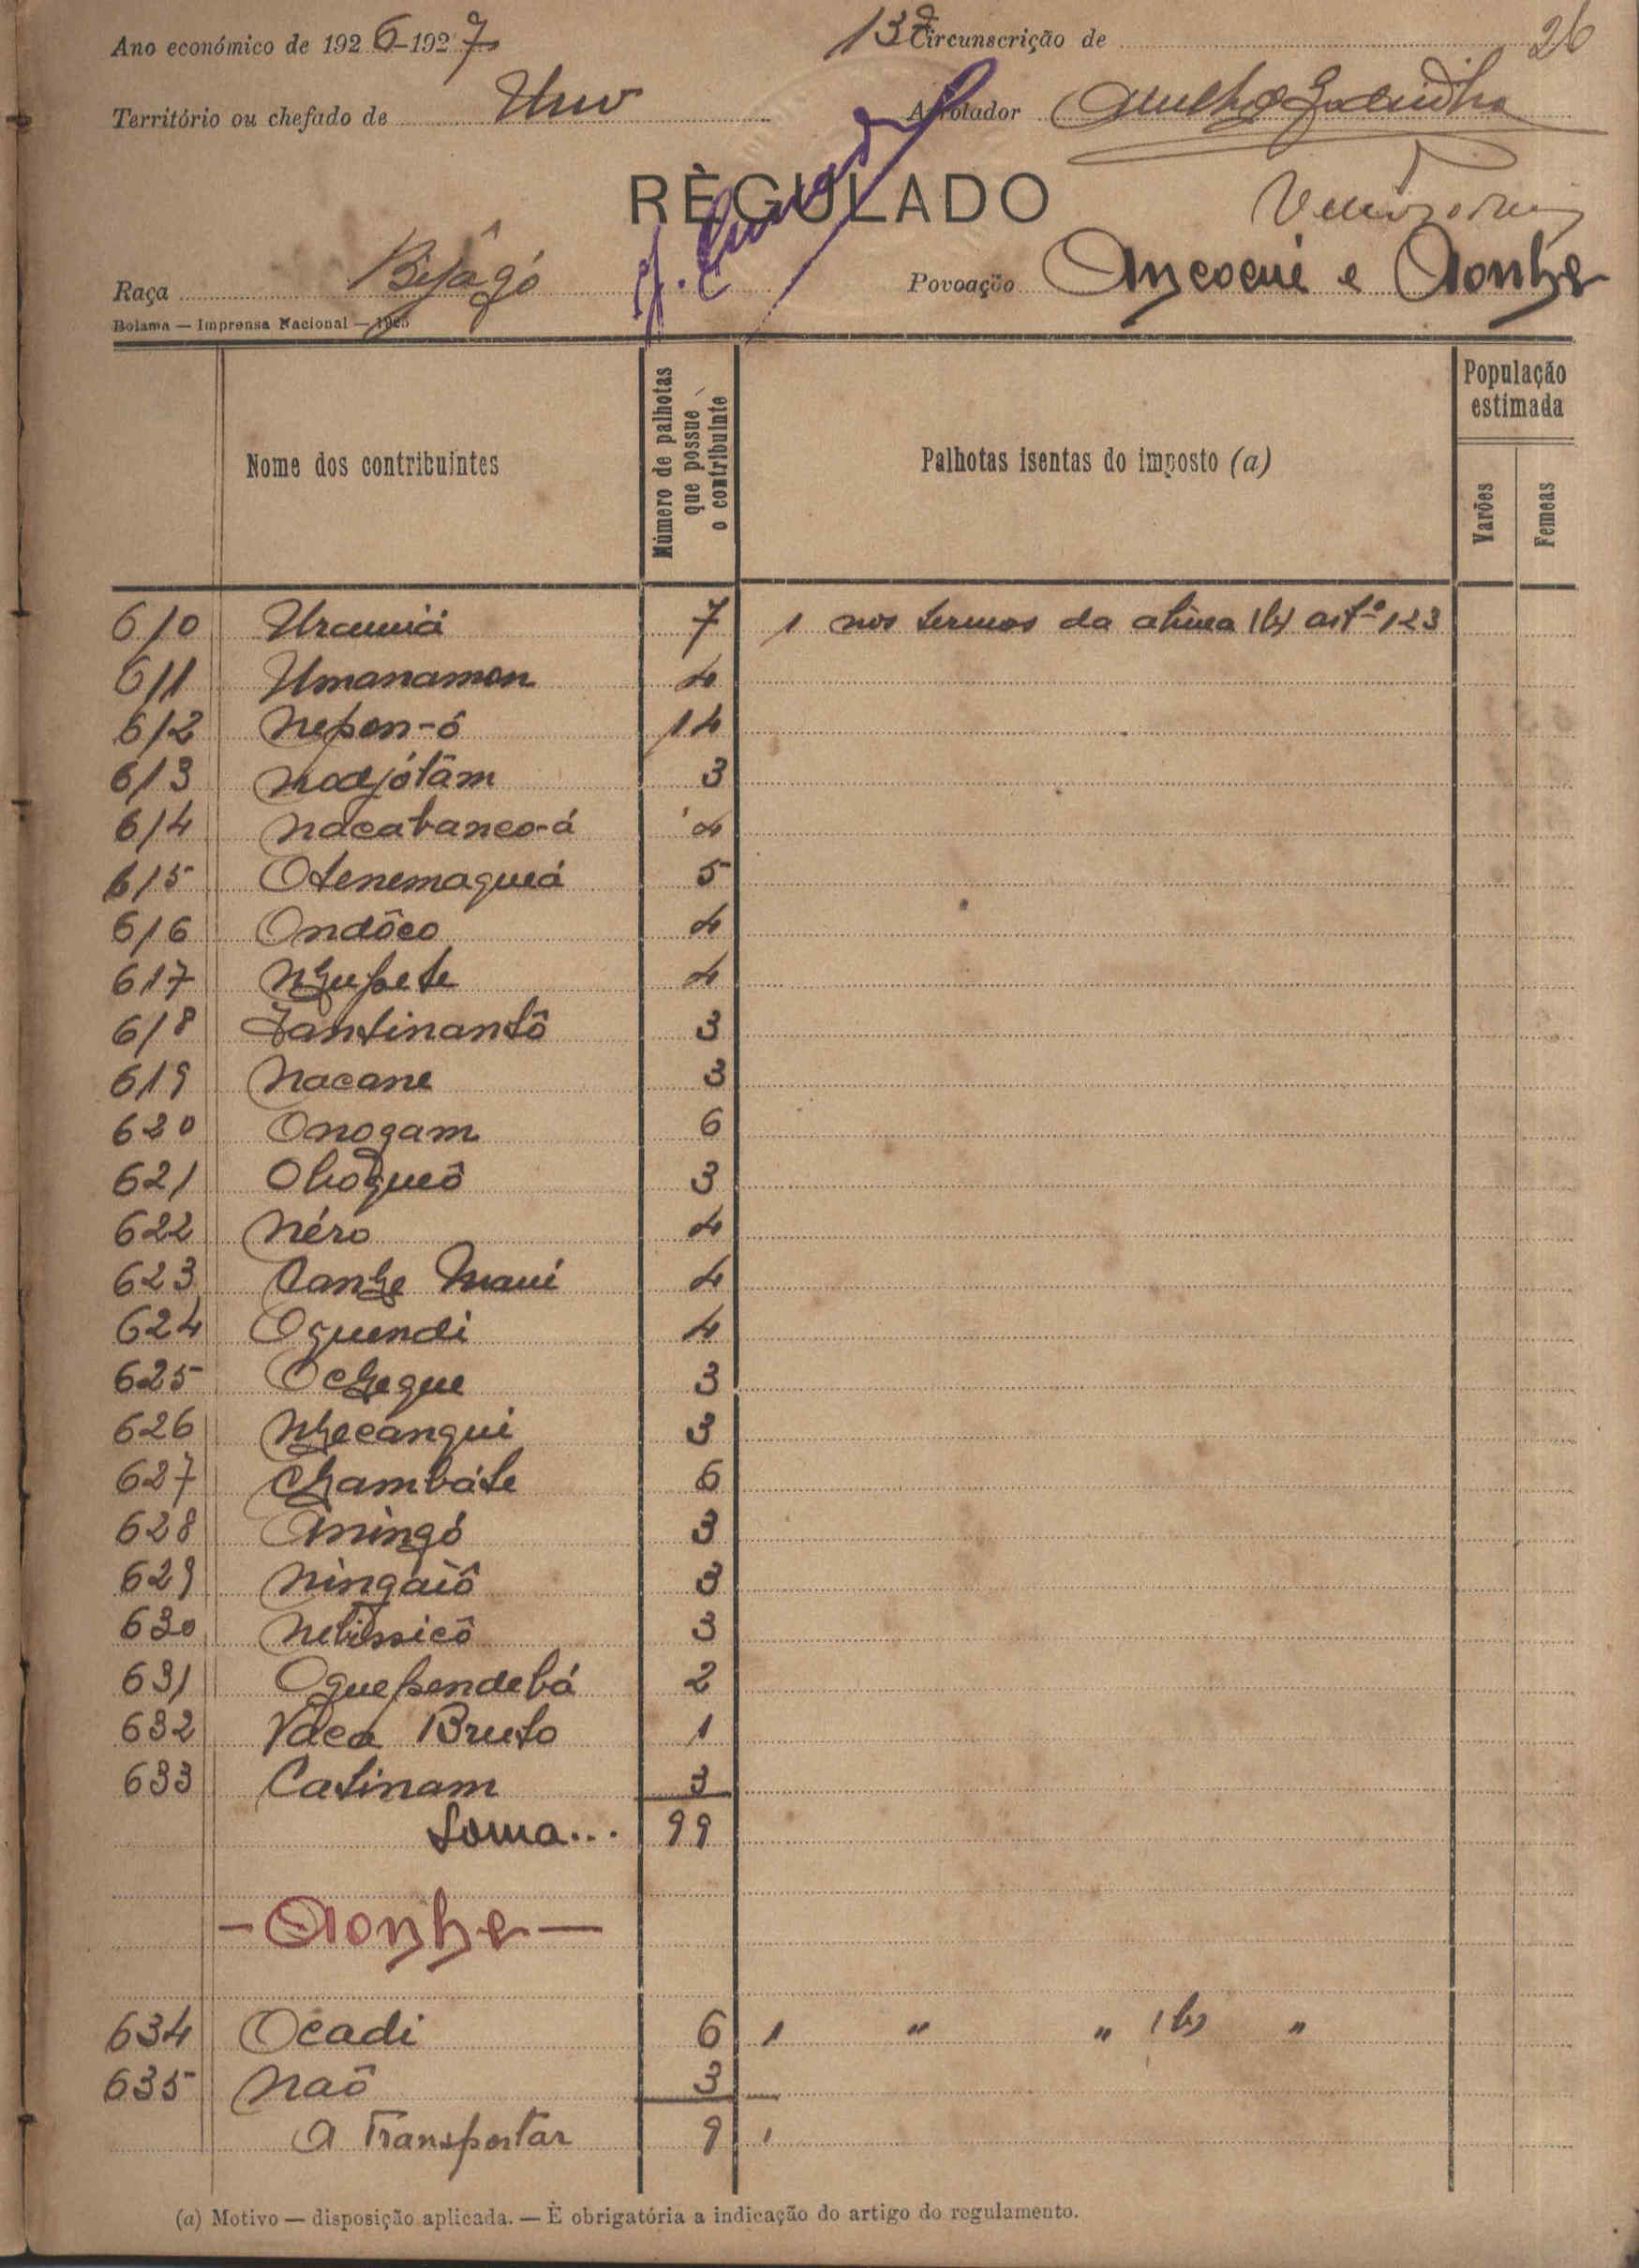 Ano económico de 1926-1927 13ª Circunscrição de 26
Território ou chefado de Uno Arrolador
RÈGULADO
Raça Bijagó Povoação Ancocui e Aonhe
Bolama — Imprensa Nacional — 1925
Nome dos contribuintes
Número de palhotas que possue o contribuinte
Palhotas isentas do imposto (a)
População estimada
Varões
Femeas
610 Uracuiá 7 1 nos termos da alinea (b) artº 123
611 Umanamon 4
612 Nepon-ó 14
613 Nadjótâm 3
614 Nacabanco-á 4
615 Otenemaguiá 5
616 Ondôco 4
617 Nhupete 4
618 Tantinantô 3
619 Nacane 3
620 Onogam 6
621 Oboqueô 3
622 Néro 4
623 Canhe Maui 4
624 Oguendi 4
625 Ochegue 3
626 Nhecanqui 3
627 Chambáte 6
628 Aningó 3
629 Ningaiô 3
630 Nebissicô 3
631 Oguependebá 2
632 Vaca Bruto 1
633 Catinam 3
Soma... 99
- Aonhe -
634 Ocadi 6 1 " " (b) "
635 Naô 3
A Transportar 9 1
(a) Motivo — disposição aplicada. — È obrigatória a indicação do artigo do regulamento.